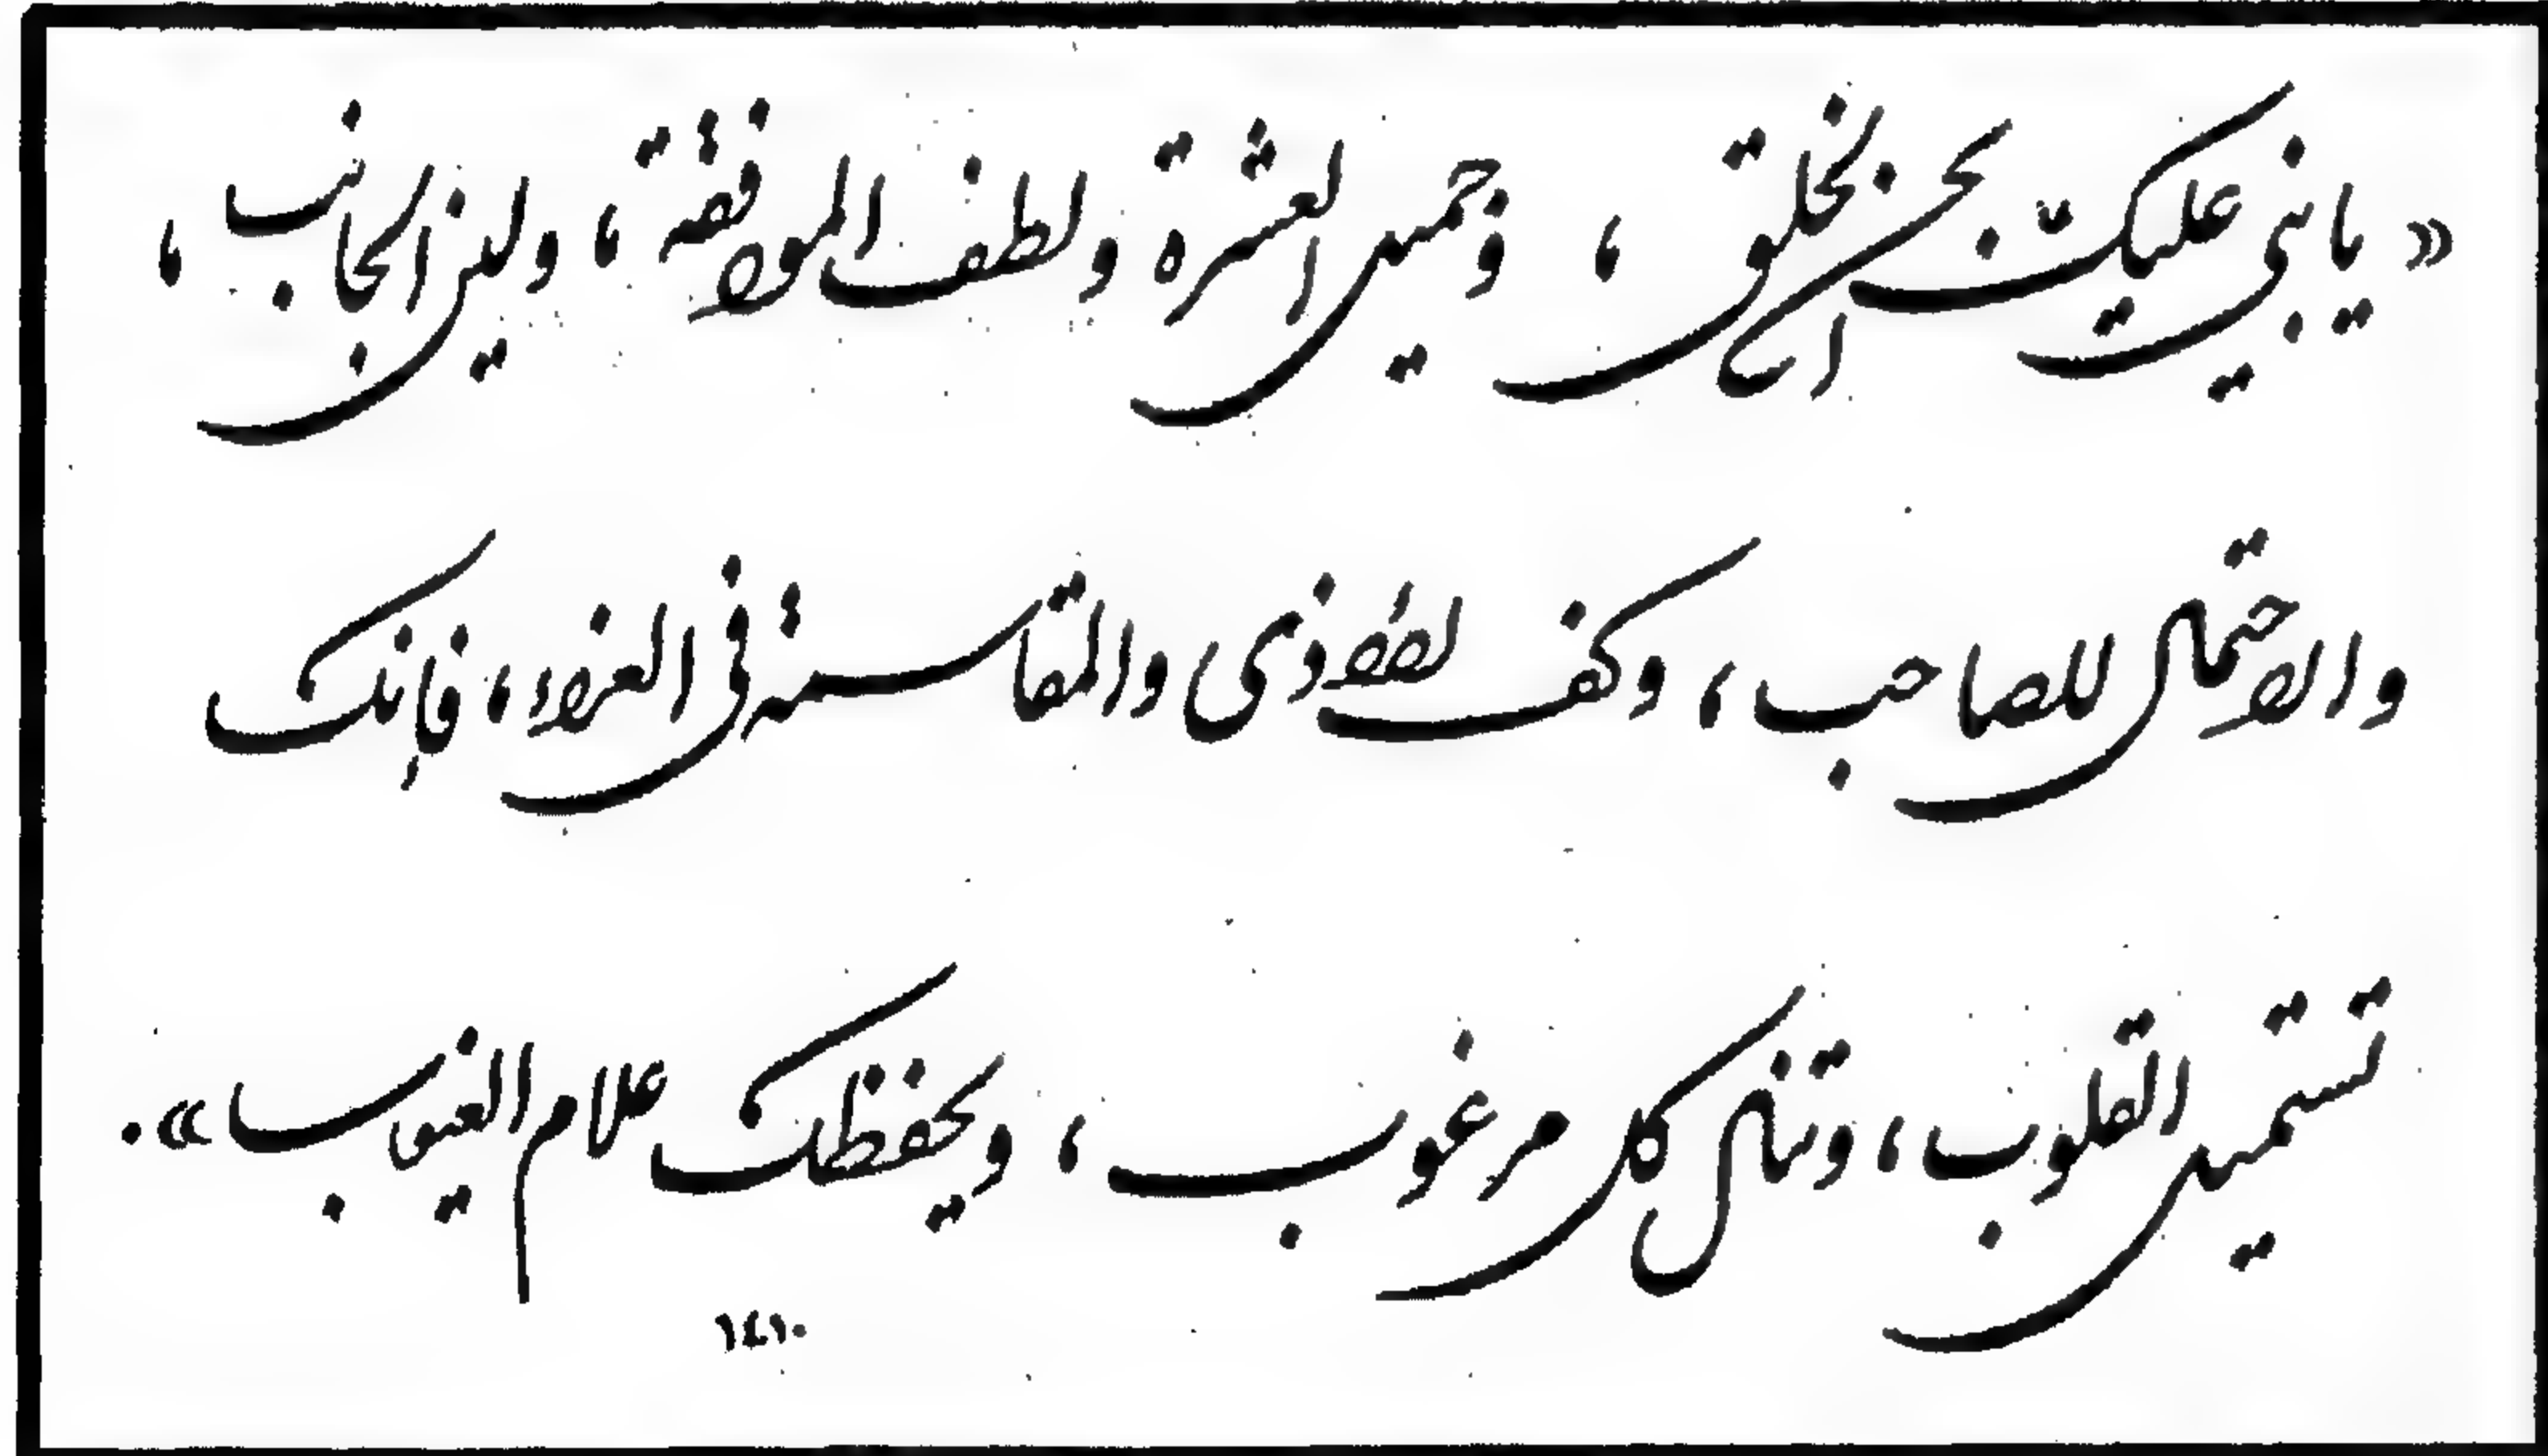 « يا بني عليك بحسن الخلق ، وجميل العشرة ولطف الموافقة ، ولين الجانب ،
والاحتمال للصاحب ، وكف الأذى والمقاسمة في العزاء ، فإنك
تستميل القلوب ، وتنال كل مرغوب ، ويحفظك علام الغيوب » .
١٤١٠